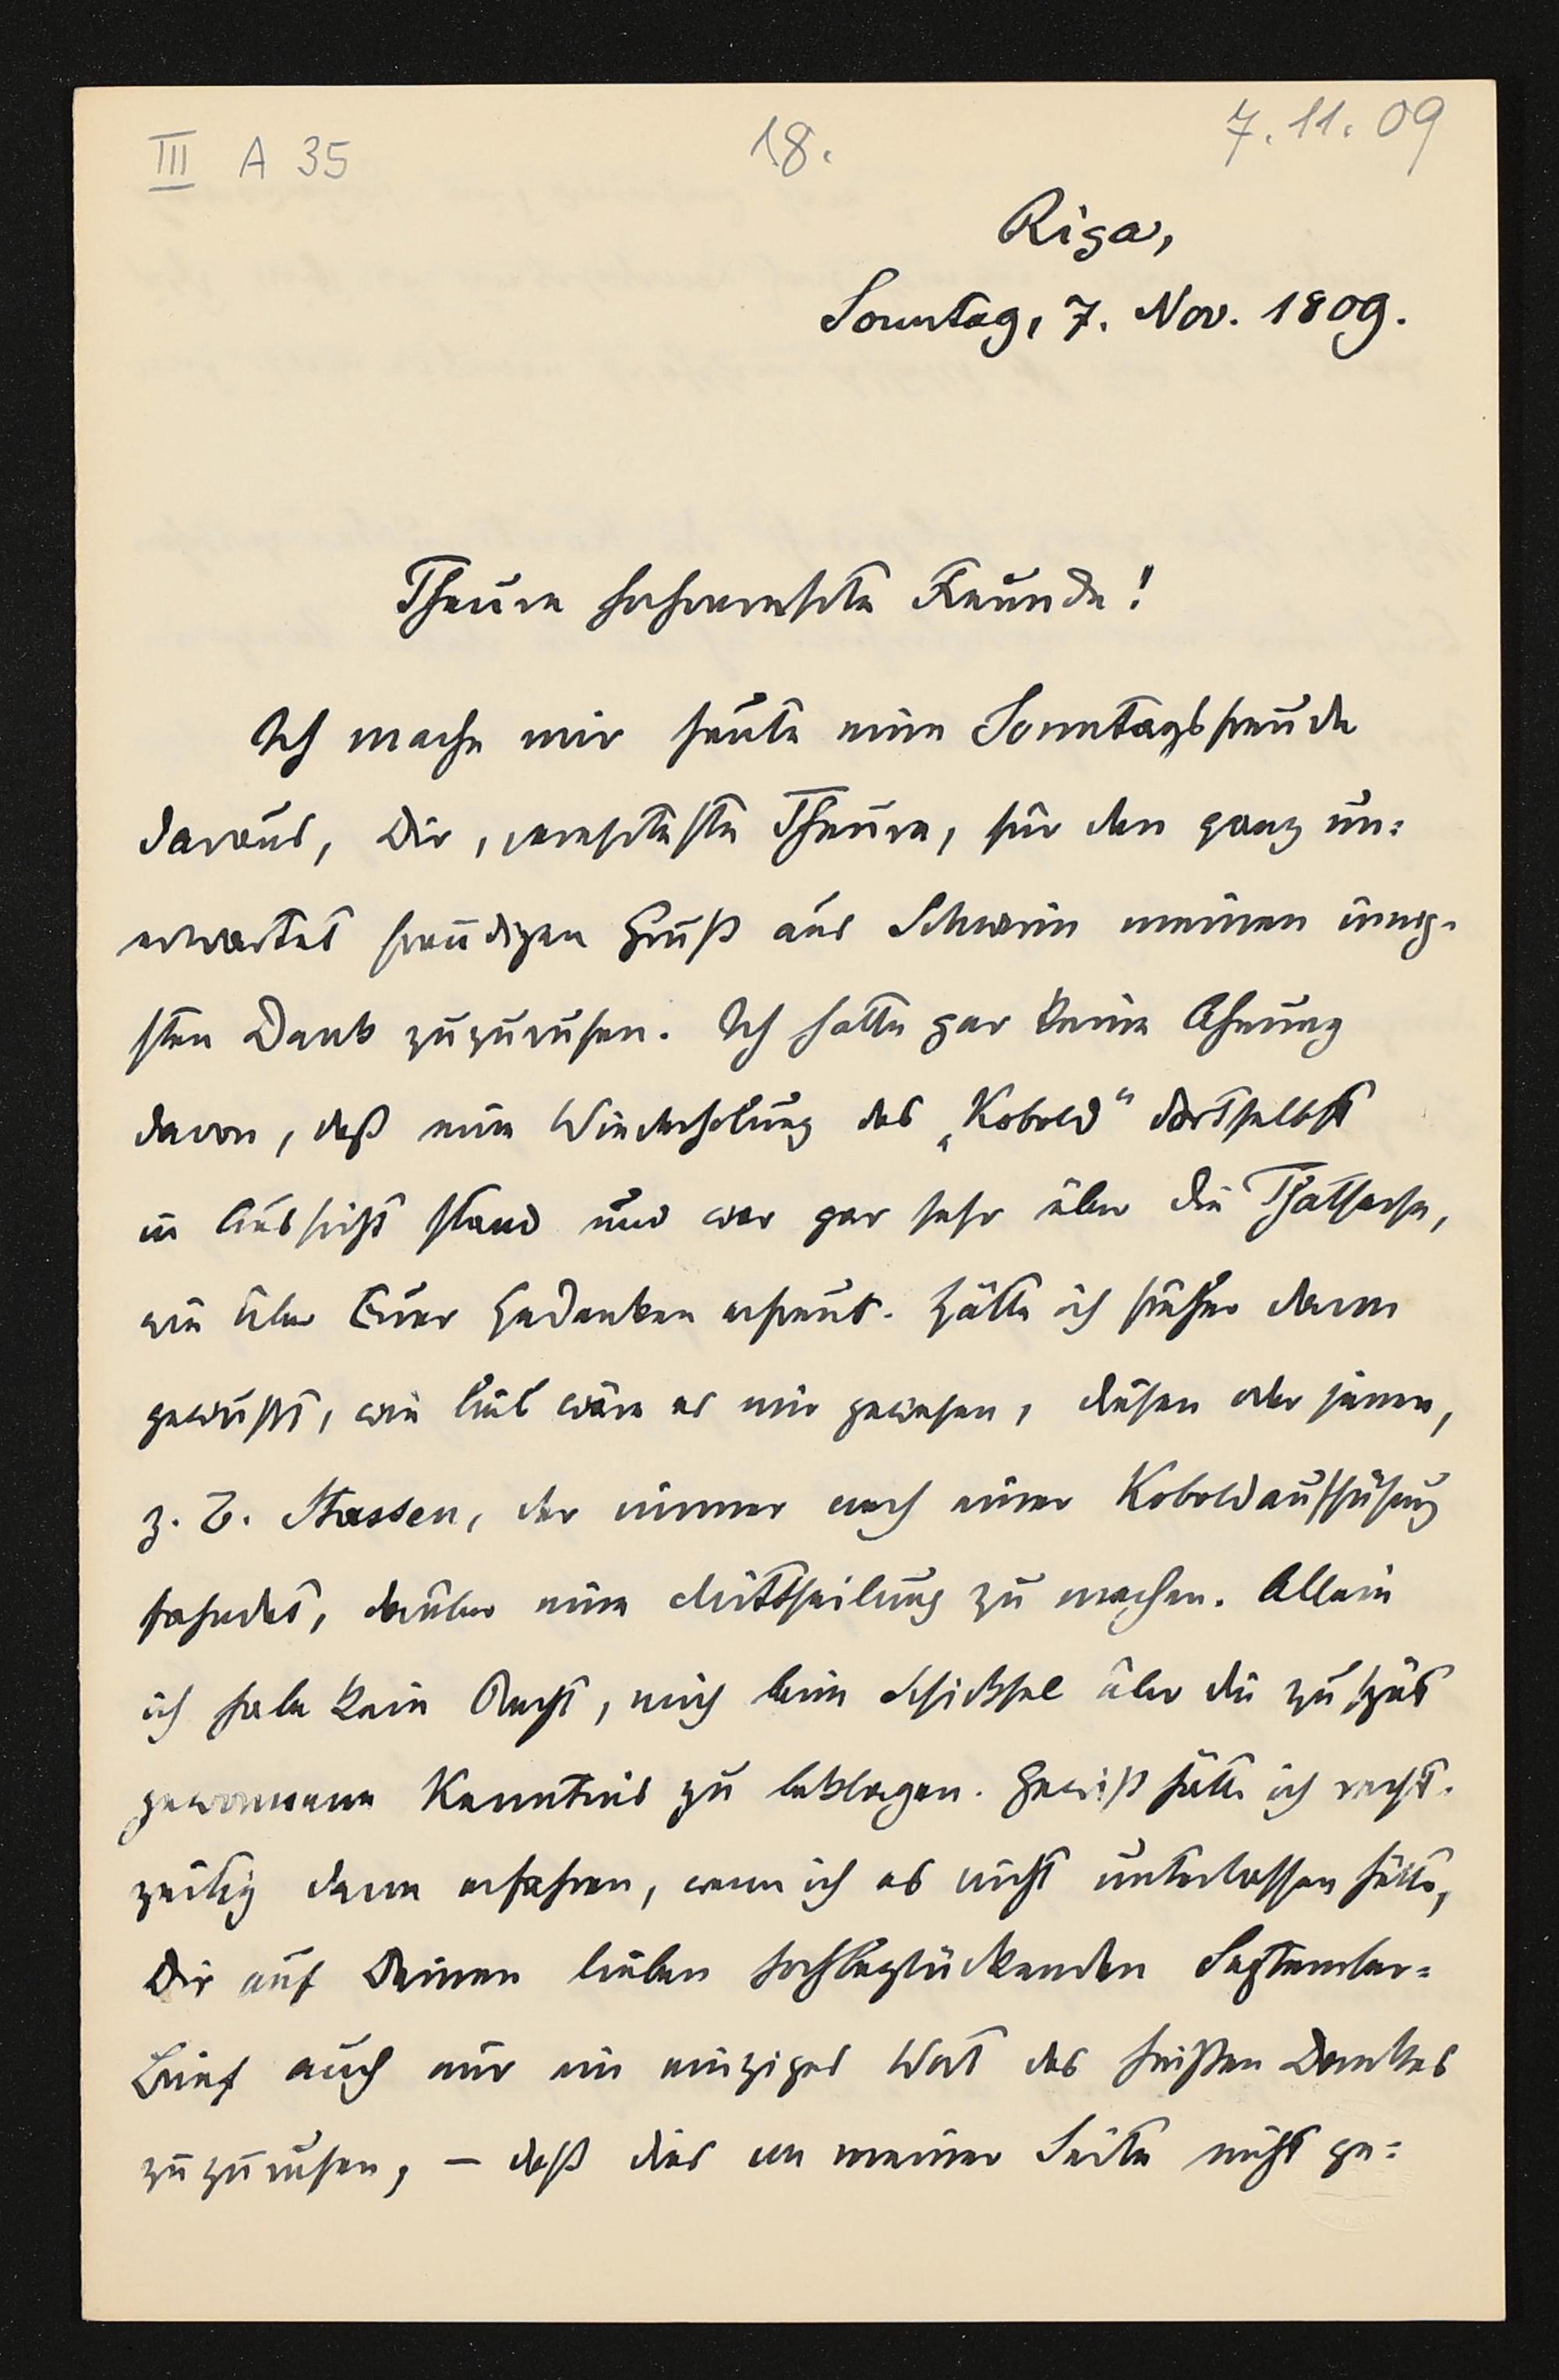 III A 35
18.
7.11.09
Riga,
Sonntag, 7. Nov. 1809.
Theure hochverehrte Freunde!
Ich mache mir heute eine Sonntagsfreude
daraus, Dir, verehrteste Theure, für den ganz un=
erwartet freudigen Gruß aus Schwerin meinen innig-
sten Dank zuzurufen. Ich hatte gar keine Ahnung
davon, daß eine Wiederholung des „Kobold“ dortselbst
in Aussicht stand und war gar sehr über die Thatsache,
wie über Euer Gedenken erfreut. Hätte ich früher davon
gewußt, wie lieb wäre es mir gewesen, diesen oder jenen,
z. B. Stassen, der immer nach einer Koboldaufführung
fahndet, darüber eine Mittheilung zu machen. Allein
ich habe kein Recht, mich beim Schicksal über die zu spät
gewonnene Kenntnis zu beklagen. Gewiß hätte ich recht-
zeitig davon erfahren, wenn ich es nicht unterlassen hätte,
Dir auf Deinen lieben hochbeglückenden September=
Brief auch nur ein einziges Wort des heißen Dankes
zuzurufen, — daß dies von meiner Seite nicht ge=